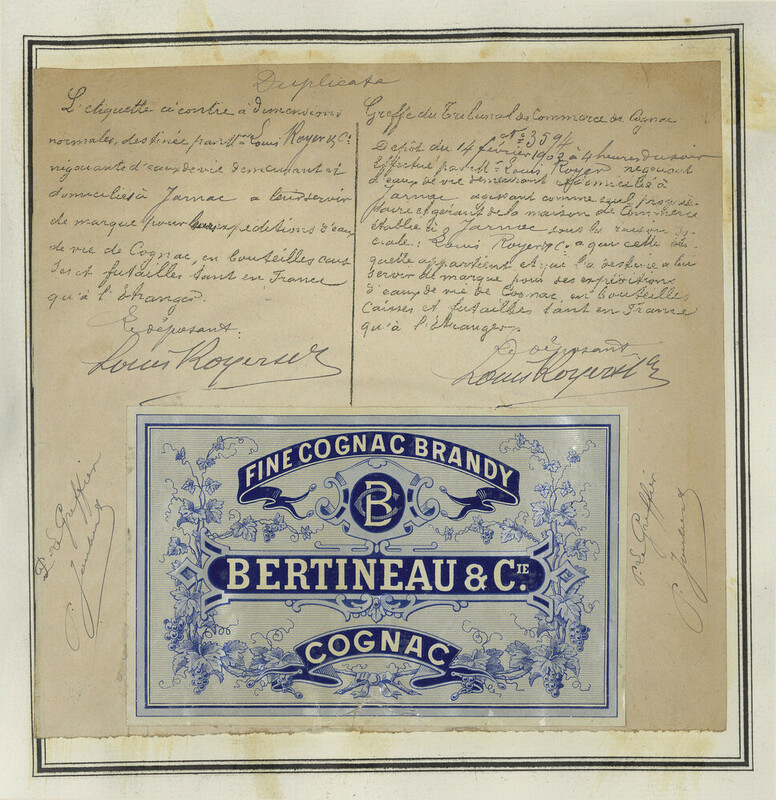 Duplicata
L'étiquette ci contre à dimensions
normales, destinée par Mr Louis Royer & Cie
négociants d'eaux de vie demeurant et
domiciliés à Jarnac à leur servir
de marque pour leurs expeditions d'eaux
de vie de Cognac, en bouteilles caisses
et futailles tant en France
qu'à l'Etranger.
Le déposant.
Louis Royer & Cie
Greffe du Tribunal de Commerce de Cognac
No 3594
Dépôt du 14 février 1902 à 4 heures du soir
effectué par Mr Louis Royer négociant
d'eaux de vie demeurant et domicilié à
Jarnac agissant comme seul proprié-
taire et gérant de la maison de Commerce
établie à Jarnac sous la raison so-
ciale: Louis Royer & Cie à qui cette éti-
quette appartient et qui l'a destinée à lui
servir de marque pour ses expéditions
d'eaux de vie de Cognac, en bouteilles
Caisses et futailles tant en France
qu'à l'étranger.
Le déposant
Louis Royer & Cie
P. Le Greffier
P. Le Greffier
FINE COGNAC BRANDY
BC
BERTINEAU & CIE.
COGNAC